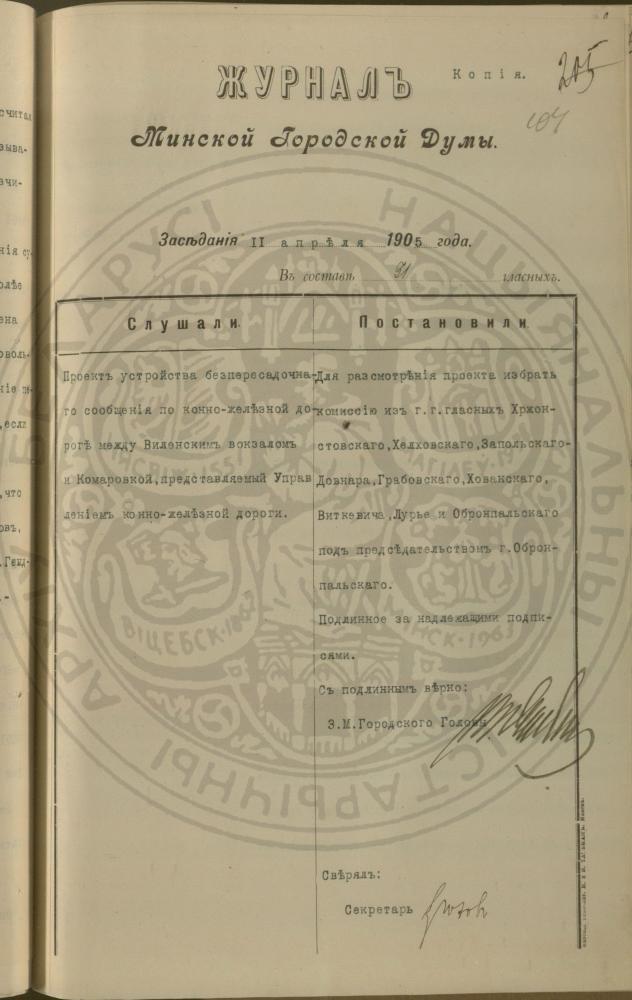 Копія.
205
107
ЖУРНАЛЪ
Минской Городской Думы.
Засѣданія II апрѣля 1905 года.
Въ составѣ гласныхъ.
Слушали.
Проектъ устройства безпересадочна-
го сообщенія по конно-желѣзной до-
рогѣ между Виленскимъ вокзаломъ
и Комаровкой,представляемый Управ
леніемъ конно-желѣзной дороги.
Постановили.
Для разсмотрѣнія проекта избрать
комиссію изъ г.г.гласныхъ Хржон-
стовскаго,Хелховскаго,Запольскаго-
Довнара,Грабовскаго,Хованскаго,
Виткевича,Лурье и Обромпальскаго
подъ предсѣдательствомъ г.Обром-
пальскаго.
Подлинное за надлежащими подпи-
сями.
Съ подлиннымъ вѣрно:
З.М.Городского Головы
Свѣрялъ:
Секретарь
НАЦЫЯНАЛЬНЫ
ГІСТАРЫЧНЫ
БЕЛАРУСІ
ВІЦЕБСК·1863
МІНСК·1963